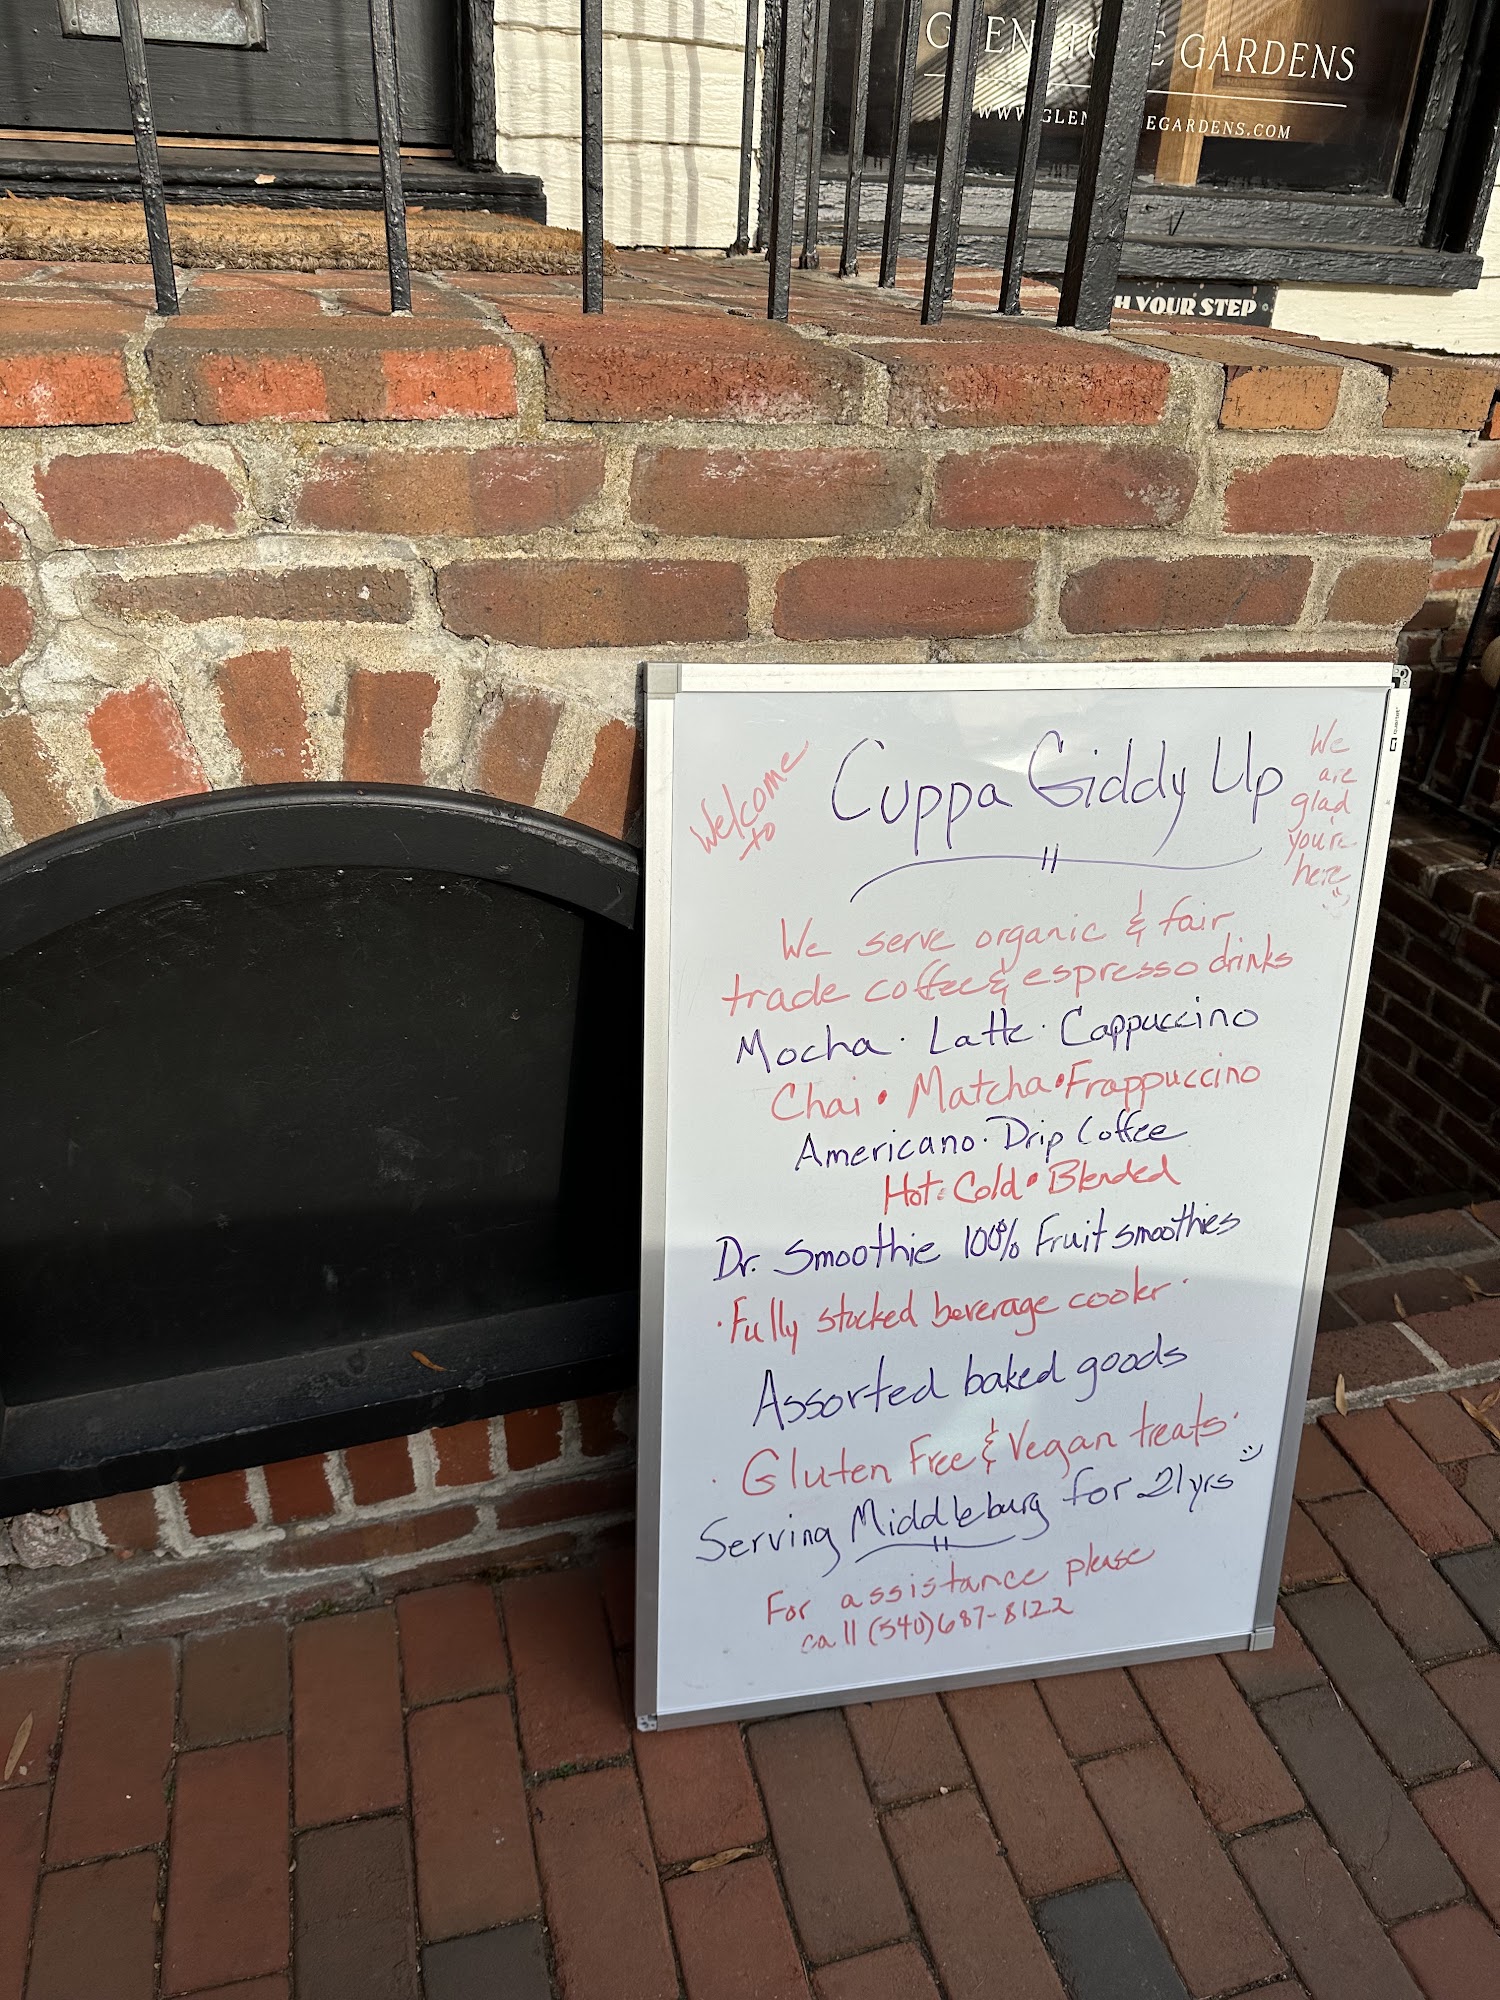 GARDENS
EGARDENS.COM
YOUR STEP
Welcome
to
Cuppa Giddy Up
We
are
glad
you're
here
We serve organic & fair
trade coffee & espresso drinks
Mocha · Latte · Cappuccino
Chai • Matcha • Frappuccino
Americano · Drip Coffee
Hot • Cold • Blended
Dr. Smoothie 100% Fruit smoothies
· Fully stocked beverage cooler ·
Assorted baked goods
· Gluten Free & Vegan treats ·
Serving Middleburg for 21 yrs
For assistance please
call (540) 687-8122